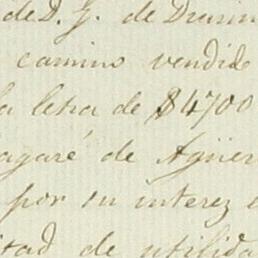 de D. J. de Drum
camino vendido
la letra de $4700
pagaré de Agüer
por su interez e
itad de utilida